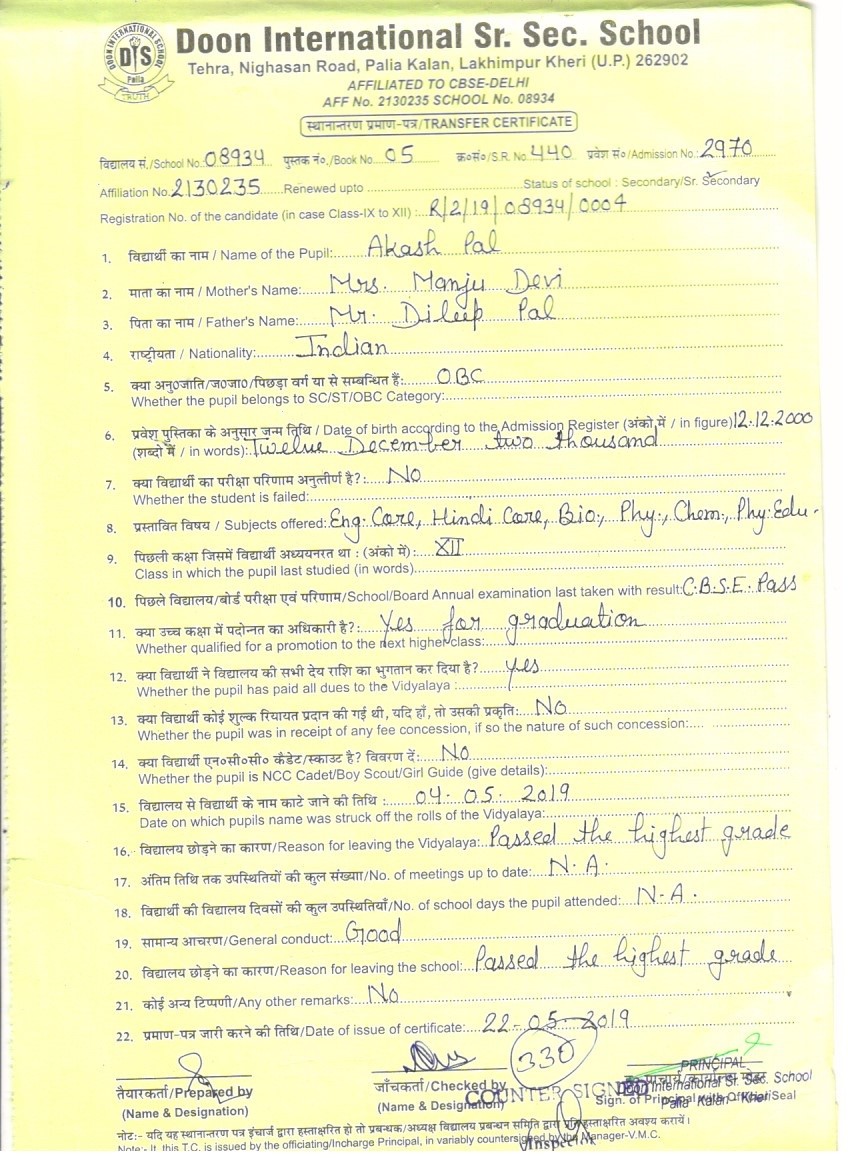 DOON INTERNATIONAL SCHOOL
DIS
Palia
TRUTH
Doon International Sr. Sec. School
Tehra, Nighasan Road, Palia Kalan, Lakhimpur Kheri (U.P.) 262902
AFFILIATED TO CBSE-DELHI
AFF No. 2130235 SCHOOL No. 08934
स्थानान्तरण प्रमाण-पत्र/TRANSFER CERTIFICATE
विद्यालय सं./School No. 08934 पुस्तक नं०/Book No. 05 क्र०सं०/S.R. No. 440 प्रवेश सं०/Admission No.: 2970
Affiliation No. 2130235 Renewed upto Status of school : Secondary/Sr. Secondary
Registration No. of the candidate (in case Class-IX to XII) : R/2/19/08934/0004
1. विद्यार्थी का नाम / Name of the Pupil: Akash Pal
2. माता का नाम / Mother's Name: Mrs. Manju Devi
3. पिता का नाम / Father's Name: Mr. Dileep Pal
4. राष्ट्रीयता / Nationality: Indian
5. क्या अनु०जाति/ज०जा०/पिछड़ा वर्ग या से सम्बन्धित हैः OBC
Whether the pupil belongs to SC/ST/OBC Category:
6. प्रवेश पुस्तिका के अनुसार जन्म तिथि / Date of birth according to the Admission Register (अंको में / in figure) 12.12.2000
(शब्दो में / in words): Twelve December two thousand
7. क्या विद्यार्थी का परीक्षा परिणाम अनुत्तीर्ण है?: No
Whether the student is failed:
8. प्रस्तावित विषय / Subjects offered: Eng. Core, Hindi Core, Bio., Phy., Chem., Phy. Edu.
9. पिछली कक्षा जिसमें विद्यार्थी अध्ययनरत था : (अंको में): XII
Class in which the pupil last studied (in words)
10. पिछले विद्यालय/बोर्ड परीक्षा एवं परिणाम/School/Board Annual examination last taken with result: C.B.S.E. Pass
11. क्या उच्च कक्षा में पदोन्नत का अधिकारी है?: Yes for graduation
Whether qualified for a promotion to the next higher class:
12. क्या विद्यार्थी ने विद्यालय की सभी देय राशि का भुगतान कर दिया है? yes
Whether the pupil has paid all dues to the Vidyalaya :
13. क्या विद्यार्थी कोई शुल्क रियायत प्रदान की गई थी, यदि हाँ, तो उसकी प्रकृति: No
Whether the pupil was in receipt of any fee concession, if so the nature of such concession:
14. क्या विद्यार्थी एन०सी०सी० कैडेट/स्काउट है? विवरण दें: No
Whether the pupil is NCC Cadet/Boy Scout/Girl Guide (give details):
15. विद्यालय से विद्यार्थी के नाम काटे जाने की तिथि : 04. 05. 2019
Date on which pupils name was struck off the rolls of the Vidyalaya:
16. विद्यालय छोड़ने का कारण/Reason for leaving the Vidyalaya: Passed the highest grade
17. अंतिम तिथि तक उपस्थितियों की कुल संख्या/No. of meetings up to date: N.A.
18. विद्यार्थी की विद्यालय दिवसों की कुल उपस्थितियाँ/No. of school days the pupil attended: N-A.
19. सामान्य आचरण/General conduct: Good
20. विद्यालय छोड़ने का कारण/Reason for leaving the school: Passed the highest grade
21. कोई अन्य टिप्पणी/Any other remarks: No
22. प्रमाण-पत्र जारी करने की तिथि/Date of issue of certificate: 22-05-2019
330
तैयारकर्ता/Prepared by
(Name & Designation)
जाँचकर्ता/Checked by
(Name & Designation)
COUNTER SIGNED
Inspector
PRINCIPAL
Doon International Sr. Sec. School
Palia Kalan-Kheri
Sign. of Principal with Official Seal
नोटः- यदि यह स्थानान्तरण पत्र इंचार्ज द्वारा हस्ताक्षरित हो तो प्रबन्धक/अध्यक्ष विद्यालय प्रबन्धन समिति द्वारा प्रति हस्ताक्षरित अवश्य करायें।
Note:- It, this T.C. is issued by the officiating/Incharge Principal, in variably countersigned by the Manager-V.M.C.